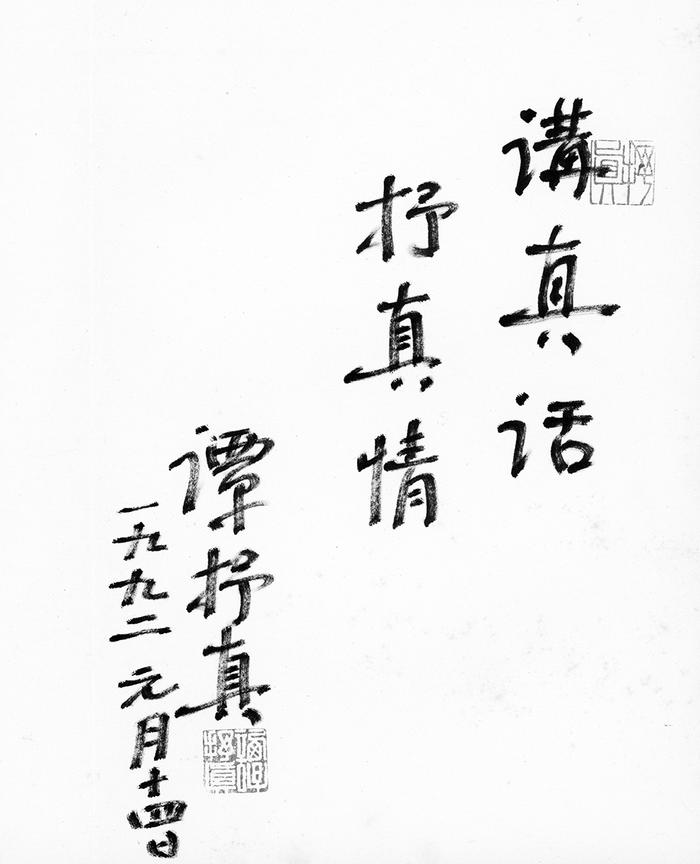 講真话
抒真情
谭抒真
一九九二 元月十四日